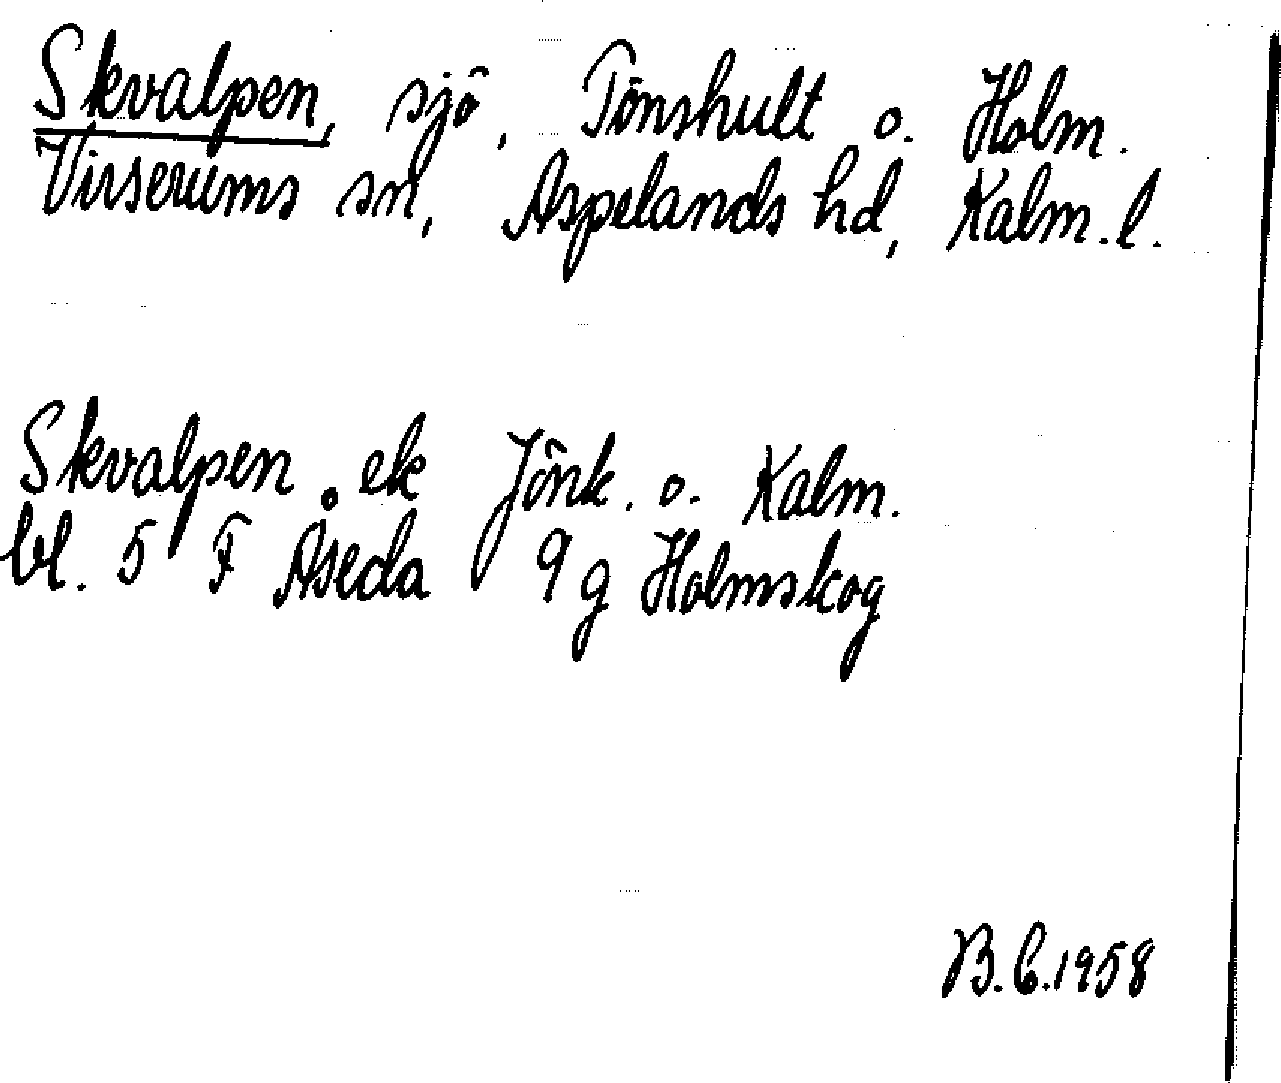 Skvalpen, sjö, Tönshult o. Holm.
Virserums sn, Aspelands hd, Kalm. l.
Skvalpen ek Jönk. o. Kalm.
bl. 5 F Åseda 9 g Holmskog
B.C. 1958